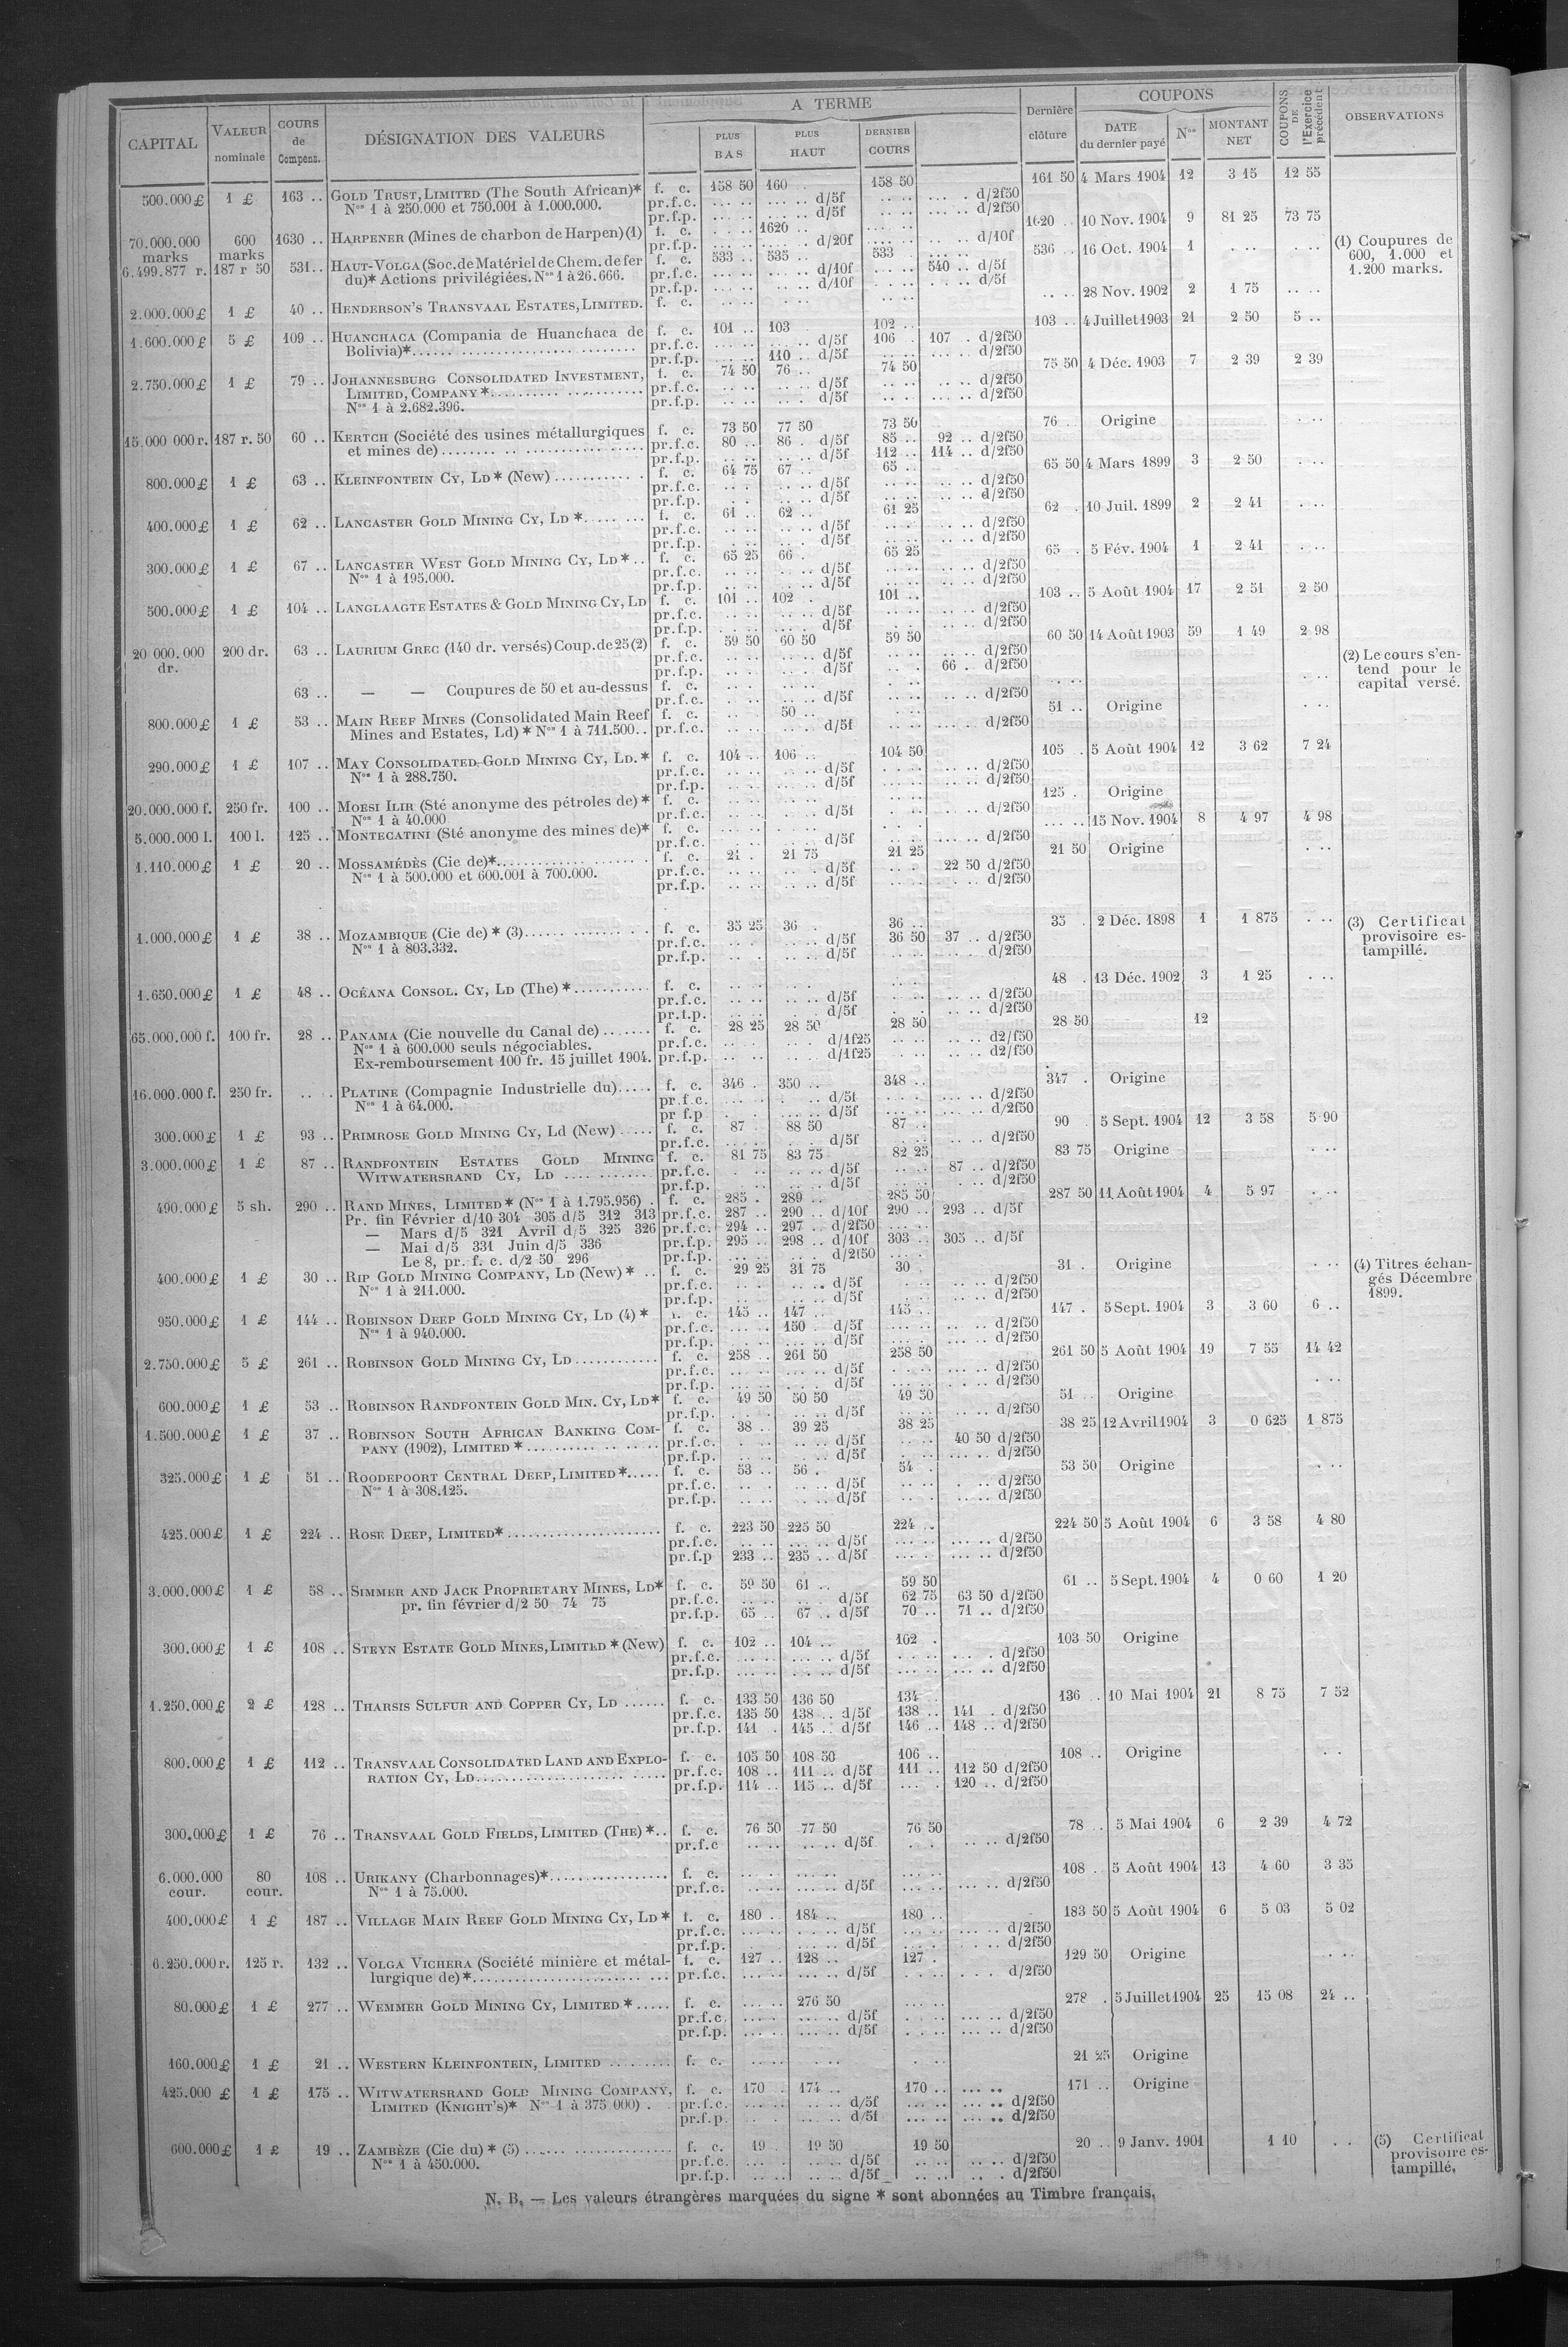 CAPITAL | VALEUR nominale | COURS de Compens. | DÉSIGNATION DES VALEURS | A TERME | PLUS BAS | PLUS HAUT | DERNIER COURS | Dernière clôture | COUPONS | DATE du dernier payé | Nos | MONTANT NET | COUPONS DE l'Exercice précédent | OBSERVATIONS
500.000 £ 1 £ 163 .. GOLD TRUST, LIMITED (The South African)* f. c. 158 50 160 .. 158 50 161 50 4 Mars 1904 12 3 15 12 55
Nos 1 à 250.000 et 750.001 à 1.000.000. pr.f.c. d/5f d/2f50
pr.f.p. d/5f d/2f50
70.000.000 marks 600 marks 1630 .. HARPENER (Mines de charbon de Harpen) (1) f. c. 1620 .. 1620 .. 10 Nov. 1904 9 81 25 73 75 (1) Coupures de 600, 1.000 et 1.200 marks.
pr.f.p. d/20f d/10f
6.499.877 r. 187 r 50 531 .. HAUT-VOLGA (Soc. de Matériel de Chem. de fer f. c. 533 .. 535 .. 533 536 .. 16 Oct. 1904 1
du)* Actions privilégiées. Nos 1 à 26.666. pr.f.c. d/10f 540 .. d/5f
pr.f.p. d/10f d/5f
2.000.000 £ 1 £ 40 .. HENDERSON'S TRANSVAAL ESTATES, LIMITED. f. c. 28 Nov. 1902 2 1 75
1.600.000 £ 5 £ 109 .. HUANCHACA (Compania de Huanchaca de f. c. 101 .. 103 102 .. 103 .. 4 Juillet 1903 21 2 50 5 ..
Bolivia)* pr.f.c. d/5f 106 107 . d/2f50
pr.f.p. 110 .. d/5f d/2f50
2.750.000 £ 1 £ 79 .. JOHANNESBURG CONSOLIDATED INVESTMENT, f. c. 74 50 76 .. 74 50 75 50 4 Déc. 1903 7 2 39 2 39
LIMITED, COMPANY * pr.f.c. d/5f d/2f50
Nos 1 à 2.682.396. pr.f.p. d/5f d/2f50
15.000 000 r. 187 r. 50 60 .. KERTCH (Société des usines métallurgiques f. c. 73 50 77 50 73 50 76 .. Origine
et mines de) pr.f.c. 80 .. 86 . d/5f 85 .. 92 .. d/2f50
pr.f.p. d/5f 112 .. 114 .. d/2f50
800.000 £ 1 £ 63 .. KLEINFONTEIN CY, LD * (New) f. c. 64 75 67 .. 65 .. 65 50 4 Mars 1899 3 2 50
pr.f.c. d/5f d/2f50
pr.f.p. d/5f d/2f50
400.000 £ 1 £ 62 .. LANCASTER GOLD MINING CY, LD * f. c. 61 .. 62 .. 61 25 62 . 10 Juil. 1899 2 2 41
pr.f.c. d/5f d/2f50
pr.f.p. d/5f d/2f50
300.000 £ 1 £ 67 .. LANCASTER WEST GOLD MINING CY, LD * .. f. c. 65 25 66 . 65 25 65 . 5 Fév. 1904 1 2 41
Nos 1 à 195.000. pr.f.c. d/5f d/2f50
pr.f.p. d/5f d/2f50
500.000 £ 1 £ 104 .. LANGLAAGTE ESTATES & GOLD MINING CY, LD f. c. 101 .. 102 . 101 .. 103 .. 5 Août 1904 17 2 51 2 50
pr.f.c. d/5f d/2f50
pr.f.p. d/5f d/2f50
20 000.000 dr. 200 dr. 63 .. LAURIUM GREC (140 dr. versés) Coup. de 25 (2) f. c. 59 50 60 50 59 50 60 50 14 Août 1903 59 1 49 2 98 (2) Le cours s'entend pour le capital versé.
pr.f.c. d/5f d/2f50
pr.f.p. d/5f 66 . d/2f50
63 .. — — Coupures de 50 et au-dessus f. c.
pr.f.c. d/5f d/2f50
800.000 £ 1 £ 53 .. MAIN REEF MINES (Consolidated Main Reef f. c. 50 .. 51 .. Origine
Mines and Estates, Ld) * Nos 1 à 711.500 .. pr.f.c. d/5f d/2f50
290.000 £ 1 £ 107 .. MAY CONSOLIDATED GOLD MINING CY, LD. * f. c. 104 .. 106 .. 104 50 105 . 5 Août 1904 12 3 62 7 24
Nos 1 à 288.750. pr.f.c. d/5f d/2f50
pr.f.p. d/5f d/2f50
20.000.000 f. 250 fr. 100 .. MOESI ILIR (Sté anonyme des pétroles de) * f. c. 125 . Origine
Nos 1 à 40.000 pr.f.c. d/5f d/2f50
5.000.000 l. 100 l. 125 .. MONTECATINI (Sté anonyme des mines de)* f. c. 15 Nov. 1904 8 4 97 4 98
pr.f.c. d/5f d/2f50
1.110.000 £ 1 £ 20 .. MOSSAMÉDÈS (Cie de)* f. c. 21 . 21 75 21 25 21 50 Origine
Nos 1 à 500.000 et 600.001 à 700.000. pr.f.c. d/5f 22 50 d/2f50
pr.f.p. d/5f d/2f50
1.000.000 £ 1 £ 38 .. MOZAMBIQUE (Cie de) * (3) f. c. 35 25 36 . 36 .. 35 . 2 Déc. 1898 1 1 875 (3) Certificat provisoire estampillé.
Nos 1 à 803.332. pr.f.c. d/5f 36 50 37 .. d/2f50
pr.f.p. d/5f d/2f50
1.650.000 £ 1 £ 48 .. OCÉANA CONSOL. CY, LD (The) * f. c. 48 . 13 Déc. 1902 3 1 25
pr.f.c. d/5f d/2f50
pr.f.p. d/5f d/2f50
65.000.000 f. 100 fr. 28 .. PANAMA (Cie nouvelle du Canal de) f. c. 28 25 28 50 28 50 28 50 12
Nos 1 à 600.000 seuls négociables. pr.f.c. d/1f25 d2/f50
Ex-remboursement 100 fr. 15 juillet 1904. pr.f.p. d/1f25 d2/f50
16.000.000 f. 250 fr. PLATINE (Compagnie Industrielle du) f. c. 346 . 350 .. 348 .. 347 . Origine
Nos 1 à 64.000. pr.f.c. d/5f d/2f50
pr f.p d/5f d/2f50
300.000 £ 1 £ 93 .. PRIMROSE GOLD MINING CY, Ld (New) f. c. 87 88 50 87 .. 90 5 Sept. 1904 12 3 58 5 90
pr.f.c. d/5f d/2f50
3.000.000 £ 1 £ 87 .. RANDFONTEIN ESTATES GOLD MINING f. c. 81 75 83 75 82 25 83 75 Origine
WITWATERSRAND CY, LD pr.f.c. d/5f 87 .. d/2f50
pr.f.p. d/5f d/2f50
490.000 £ 5 sh. 290 .. RAND MINES, LIMITED * (Nos 1 à 1.795.956) . f. c. 285 . 289 .. 285 50 287 50 11 Août 1904 4 5 97
Pr. fin Février d/10 304 305 d/5 312 313 pr.f.c. 287 .. 290 .. d/10f 290 .. 293 .. d/5f
— Mars d/5 321 Avril d/5 325 326 pr.f.c. 294 .. 297 .. d/2f50
— Mai d/5 331 Juin d/5 336 pr.f.p. 295 .. 298 .. d/10f 303 .. 305 .. d/5f
Le 8, pr. f. c. d/2 50 296 pr.f.p. d/2f50
400.000 £ 1 £ 30 .. RIP GOLD MINING COMPANY, LD (New) * .. f. c. 29 25 31 75 30 31 . Origine (4) Titres échangés Décembre 1899.
Nos 1 à 211.000. pr.f.c. d/5f d/2f50
pr.f.p. d/5f d/2f50
950.000 £ 1 £ 144 .. ROBINSON DEEP GOLD MINING CY, LD (4) * f. c. 145 .. 147 .. 145 .. 147 . 5 Sept. 1904 3 3 60 6 ..
Nos 1 à 940.000. pr.f.c. 150 d/5f d/2f50
pr.f.p. d/5f d/2f50
2.750.000 £ 5 £ 261 .. ROBINSON GOLD MINING CY, LD f. c. 258 .. 261 50 258 50 261 50 5 Août 1904 19 7 55 14 42
pr.f.c. d/5f d/2f50
pr.f.p. d/5f d/2f50
600.000 £ 1 £ 53 .. ROBINSON RANDFONTEIN GOLD MIN. CY, LD* f. c. 49 50 50 50 49 50 51 .. Origine
pr.f.p. d/5f d/2f50
1.500.000 £ 1 £ 37 .. ROBINSON SOUTH AFRICAN BANKING COM- f. c. 38 .. 39 25 38 25 38 25 12 Avril 1904 3 0 625 1 875
PANY (1902), LIMITED * pr.f.c. d/5f 40 50 d/2f50
pr.f.p. d/5f d/2f50
325.000 £ 1 £ 51 .. ROODEPOORT CENTRAL DEEP, LIMITED * f. c. 53 .. 56 . 54 . 53 50 Origine
Nos 1 à 308.125. pr.f.c. d/5f d/2f50
pr.f.p. d/5f d/2f50
425.000 £ 1 £ 224 .. ROSE DEEP, LIMITED* f. c. 223 50 225 50 224 .. 224 50 5 Août 1904 6 3 58 4 80
pr.f.c. d/5f d/2f50
pr.f.p 233 .. 235 .. d/5f d/2f50
3.000.000 £ 1 £ 58 .. SIMMER AND JACK PROPRIETARY MINES, LD* f. c. 59 50 61 .. 59 50 61 .. 5 Sept. 1904 4 0 60 1 20
pr. fin février d/2 50 74 75 pr.f.c. d/5f 62 75 63 50 d/2f50
pr.f.p. 65 .. 67 .. d/5f 70 .. 71 .. d/2f50
300.000 £ 1 £ 108 .. STEYN ESTATE GOLD MINES, LIMITED * (New) f. c. 102 .. 104 .. 102 . 103 50 Origine
pr.f.c. d/5f d/2f50
pr.f.p. d/5f d/2f50
1.250.000 £ 2 £ 128 .. THARSIS SULFUR AND COPPER CY, LD f. c. 133 50 136 50 134 136 .. 10 Mai 1904 21 8 75 7 52
pr.f.c. 135 50 138 .. d/5f 138 .. 141 . d/2f50
pr.f.p. 141 . 145 .. d/5f 146 .. 148 .. d/2f50
800.000 £ 1 £ 112 .. TRANSVAAL CONSOLIDATED LAND AND EXPLO- f. c. 105 50 108 50 106 .. 108 .. Origine
RATION CY, LD pr.f.c. 108 .. 111 .. d/5f 111 .. 112 50 d/2f50
pr.f.p. 114 .. 115 .. d/5f 120 .. d/2f50
300.000 £ 1 £ 76 .. TRANSVAAL GOLD FIELDS, LIMITED (THE) * .. f. c. 76 50 77 50 76 50 78 .. 5 Mai 1904 6 2 39 4 72
pr.f.c d/5f d/2f50
6.000.000 cour. 80 cour. 108 .. URIKANY (Charbonnages)* f. c. 108 . 5 Août 1904 13 4 60 3 35
Nos 1 à 75.000. pr.f.c. d/5f d/2f50
400.000 £ 1 £ 187 .. VILLAGE MAIN REEF GOLD MINING CY, LD * f. c. 180 .. 184 .. 180 .. 183 50 5 Août 1904 6 5 03 5 02
pr.f.c. d/5f d/2f50
pr.f.p. d/5f d/2f50
6.250.000 r. 125 r. 132 .. VOLGA VICHERA (Société minière et métal- f. c. 127 .. 128 .. 127 . 129 50 Origine
lurgique de)* pr.f.c. d/5f d/2f50
80.000 £ 1 £ 277 .. WEMMER GOLD MINING CY, LIMITED * f. c. 276 50 278 . 5 Juillet 1904 25 15 08 24 ..
pr.f.c. d/5f d/2f50
pr.f.p. d/5f d/2f50
160.000 £ 1 £ 21 .. WESTERN KLEINFONTEIN, LIMITED f. c. 21 25 Origine
425.000 £ 1 £ 175 .. WITWATERSRAND GOLD MINING COMPANY, f. c. 170 . 174 .. 170 .. 171 .. Origine
LIMITED (KNIGHT'S)* Nos 1 à 375 000) . pr.f.c. d/5f d/2f50
pr.f.p. d/5f d/2f50
600.000 £ 1 £ 19 .. ZAMBÈZE (Cie du) * (5) f. c. 19 19 50 19 50 20 .. 9 Janv. 1901 1 10 (5) Certificat provisoire estampillé.
Nos 1 à 450.000. pr.f.c. d/5f d/2f50
pr.f.p. d/5f d/2f50
N. B. — Les valeurs étrangères marquées du signe * sont abonnées au Timbre français.